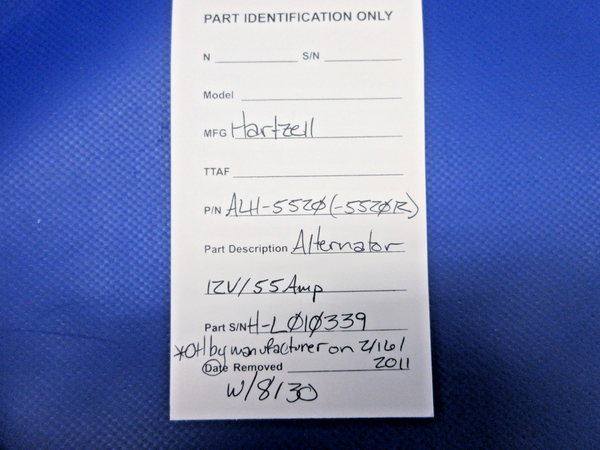 PART IDENTIFICATION ONLY
N S/N
Model
MFG Hartzell
TTAF
P/N ALH-5520 (-5520R)
Part Description Alternator
12V/55 Amp
Part S/N H-L010339
*OH by manufacturer on 2/16/
Date Removed 2011
W/8130